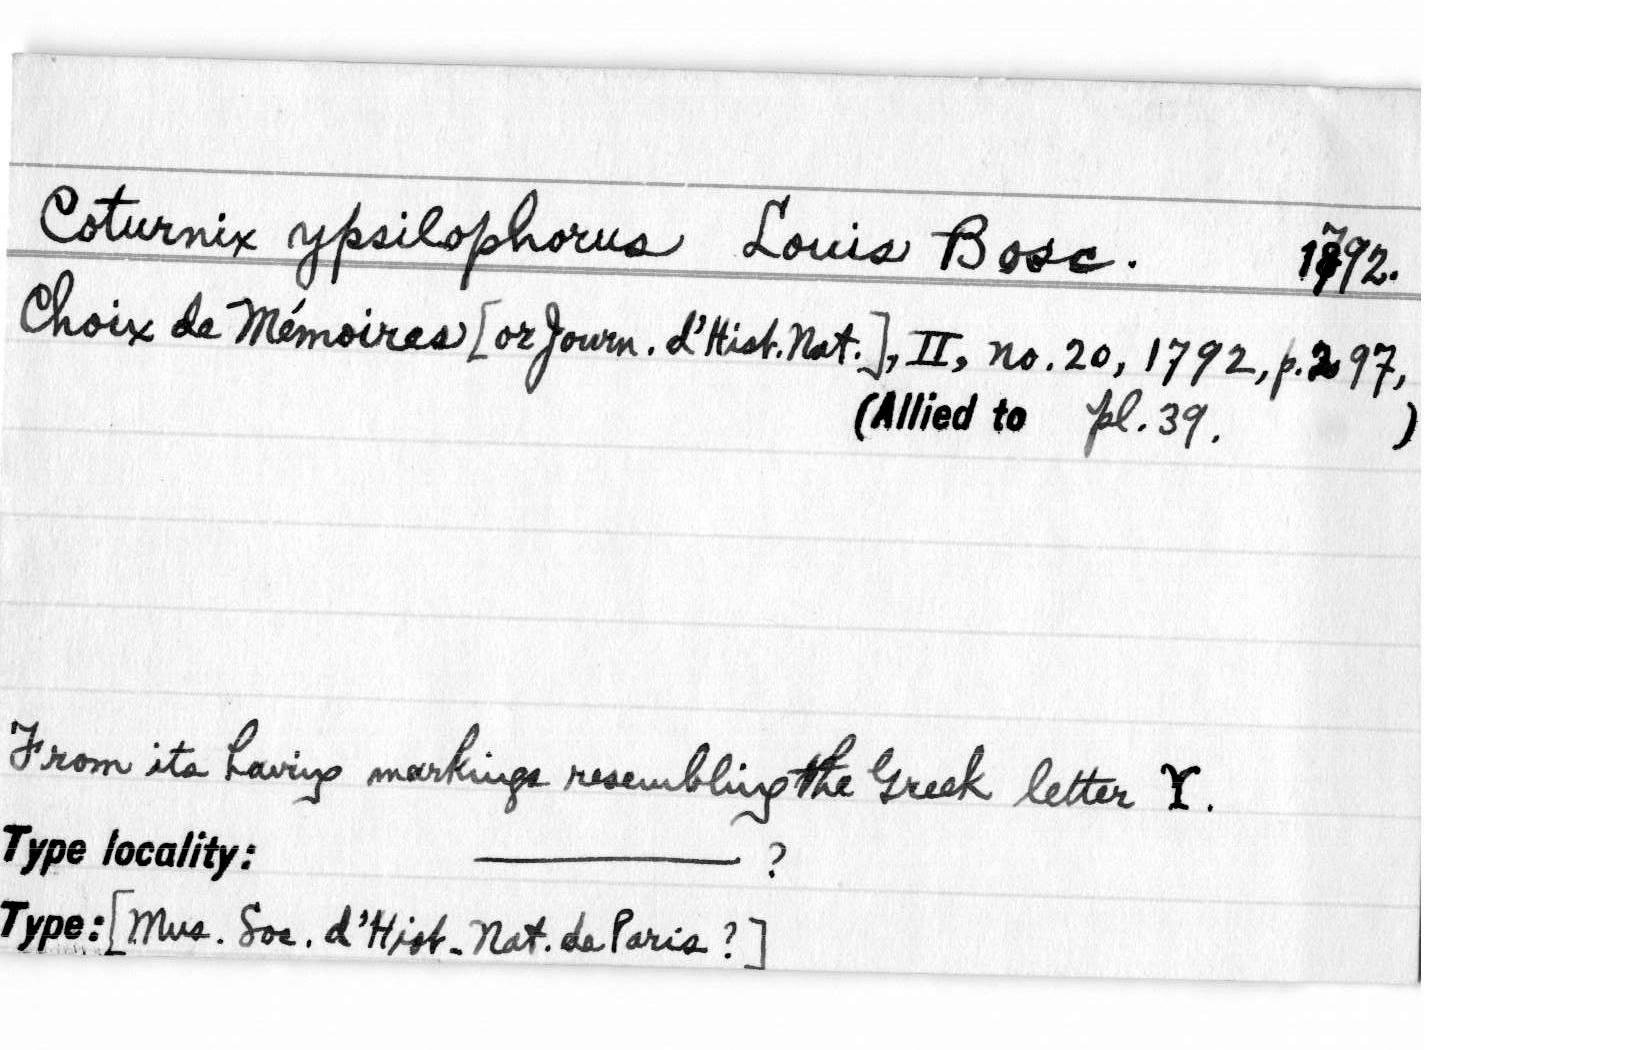 Coturnix ypsilophorus Louis Bosc. 1792.
Choix de Mémoires [or Journ. d'Hist. Nat.], II, no. 20, 1792, p. 297,
(Allied to pl. 39. )
From its having markings resembling the Greek letter ϒ.
Type locality: ———— ?
Type: [Mus. Soc. d'Hist. Nat. de Paris ?]